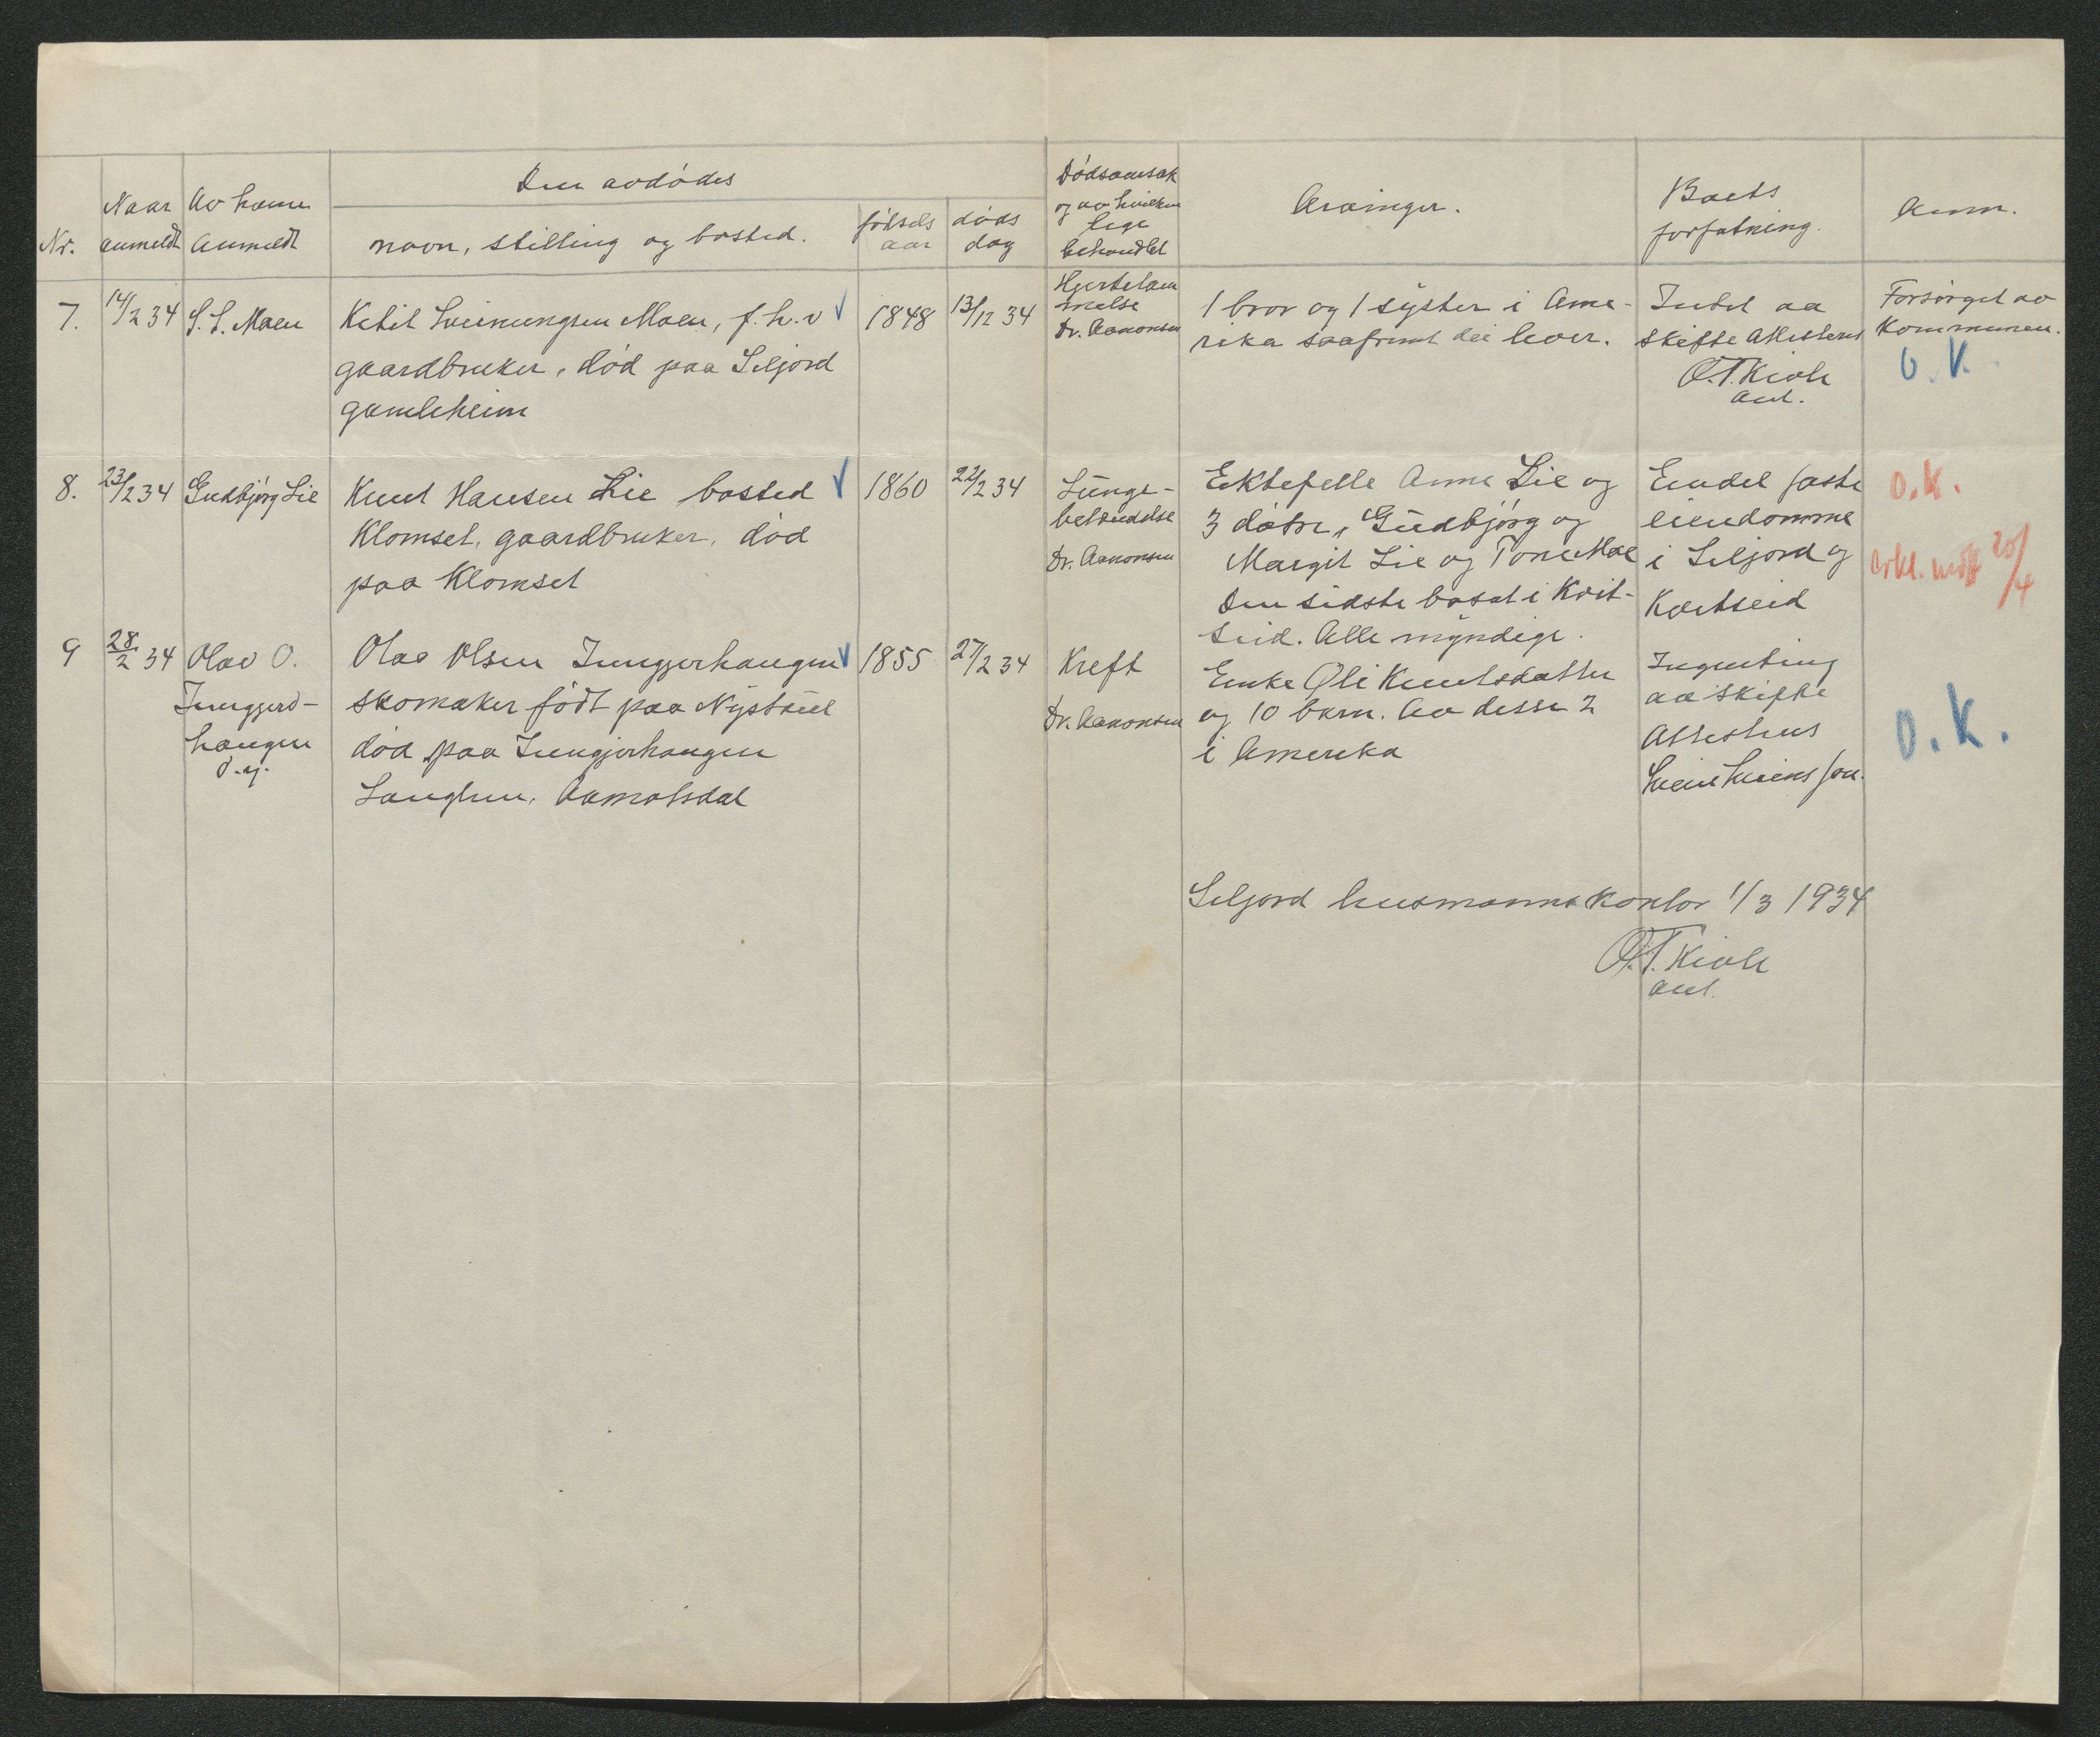 Nr.
Naar
anmeldt
Av hvem
Anmeldt
Den avdødes
navn, stilling og bosted.
fødsels
aar
døds
dag
Dødsaarsak
og av hvilken
lege
behandlet
Arvinger.
Boets
forfatning.
Anm.
7.
14/2 34
S. S. Moen
Ketil Sveinungsen Moen, f.h.v
gaardbruker, død paa Seljord
gamleheim
1848
13/12 34
Hjertelam
melse
Dr. Aakonsen
1 bror og 1 syster i Ame-
rika saafremt dei lever.
Intet aa
skifte Attesteres
O.T. Kivle
Forsørget av
Kommunen.
O.K.
8.
23/2 34
Gudbjørg Lie
Knut Hansen Lie bosted
Klomset, gaardbruker, død
paa Klomset
1860
22/2 34
Lunge-
betendelse
Dr. Aakonsen
Ektefelle Anne Lie og
3 døtre, Gudbjørg og
Margit Lie og Tone Moe
den sidste bosat i Kvit-
seid. Alle myndige.
Eindel faste
eiendomme
i Seljord og
Kvitseid
O.K.
erkl. mott 20/4
9
28/2 34
Olav O.
Jungjerd-
haugen
Olav Olsen Jungjerhaugen
skomaker født paa Nystaul
død paa Jungjerhaugen
Langlim, Aamotsdal
1855
27/2 34
Kreft
Dr. Aakonsen
Enke Oli Knutsdatter
og 10 barn. Av disse 2
i Amerika
Ingenting
aa skifte
Attesteres
O.K.
Seljord lensmannskontor 1/3 1934
O.T. Kivle